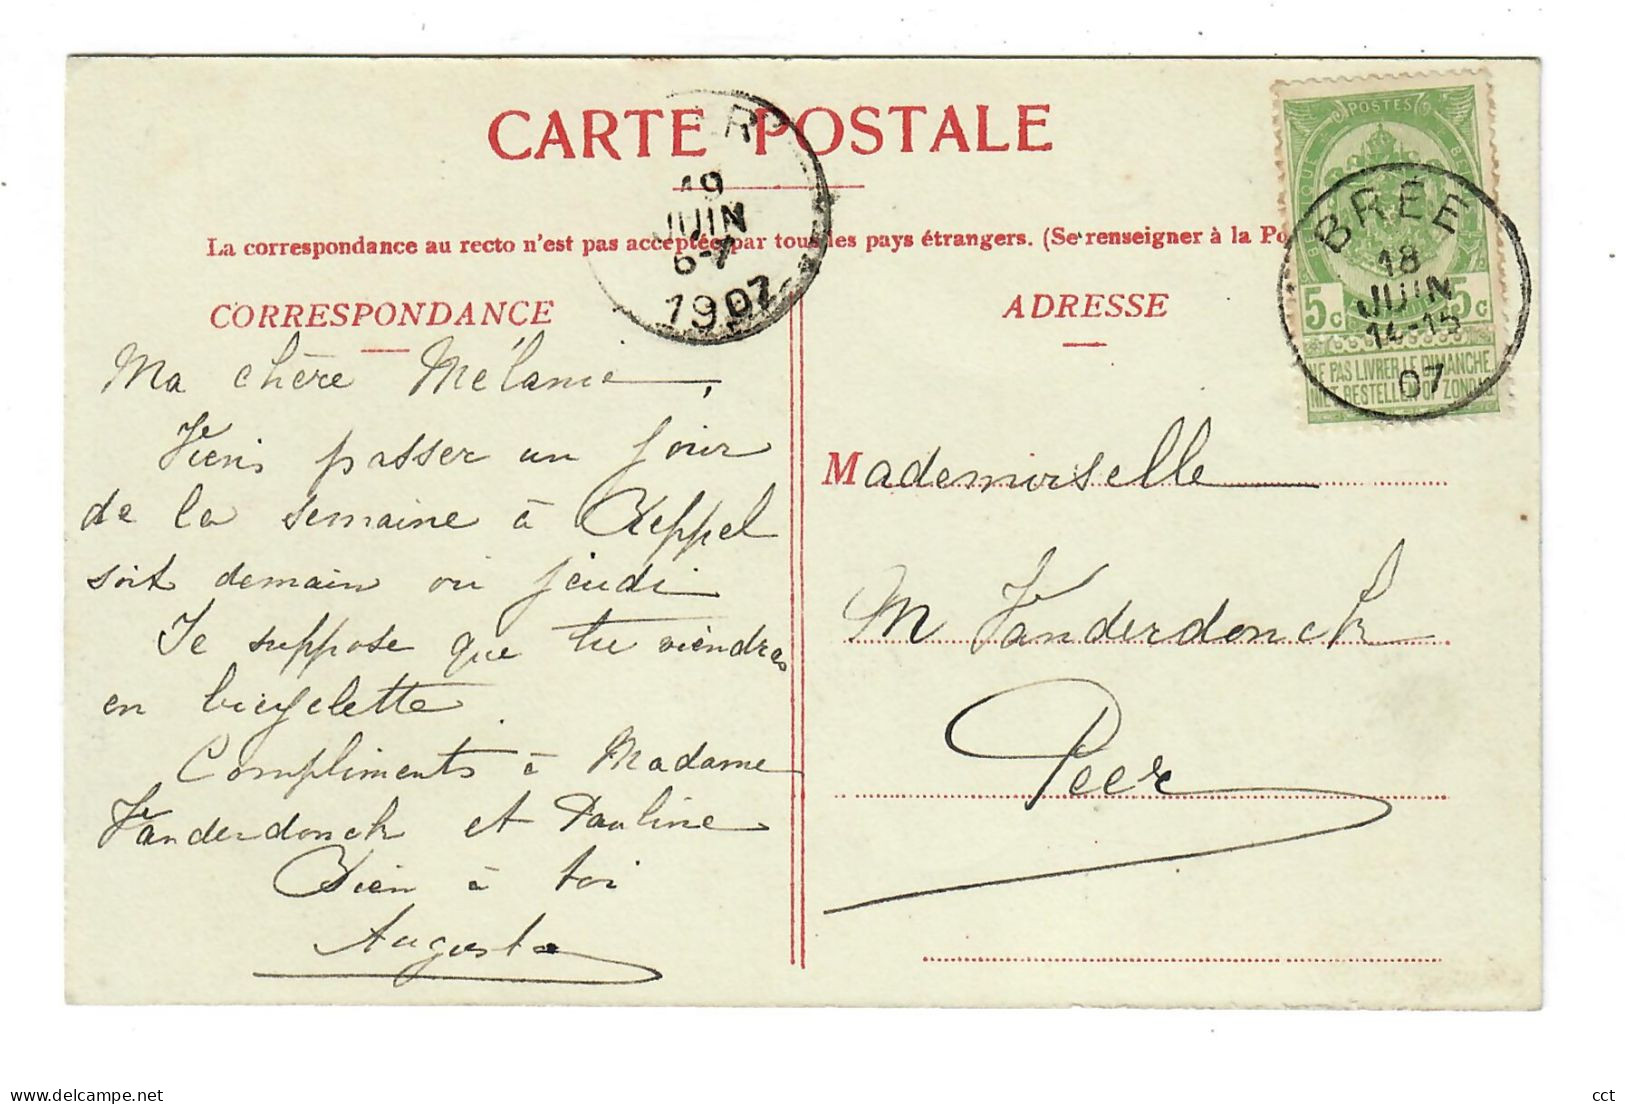 CARTE POSTALE
La correspondance au recto n'est pas acceptée par tous les pays étrangers. (Se renseigner à la Po
CORRESPONDANCE
Ma chère Mélanie,
Viens passer un jour
de la semaine à Keppel
soit demain ou jeudi
Je suppose que tu viendras
en bicyclette.
Compliments à Madame
Vanderdonck et Pauline
Bien à toi
Augusta
ADRESSE
Mademoiselle
M Vanderdonck
Peer
R
19
JUIN
6-7
1907
POSTES
5c 5c
NE PAS LIVRER LE DIMANCHE
NIET BESTELLEN OP ZONDAG
BRÉE
18
JUIN
14-15
07
cct